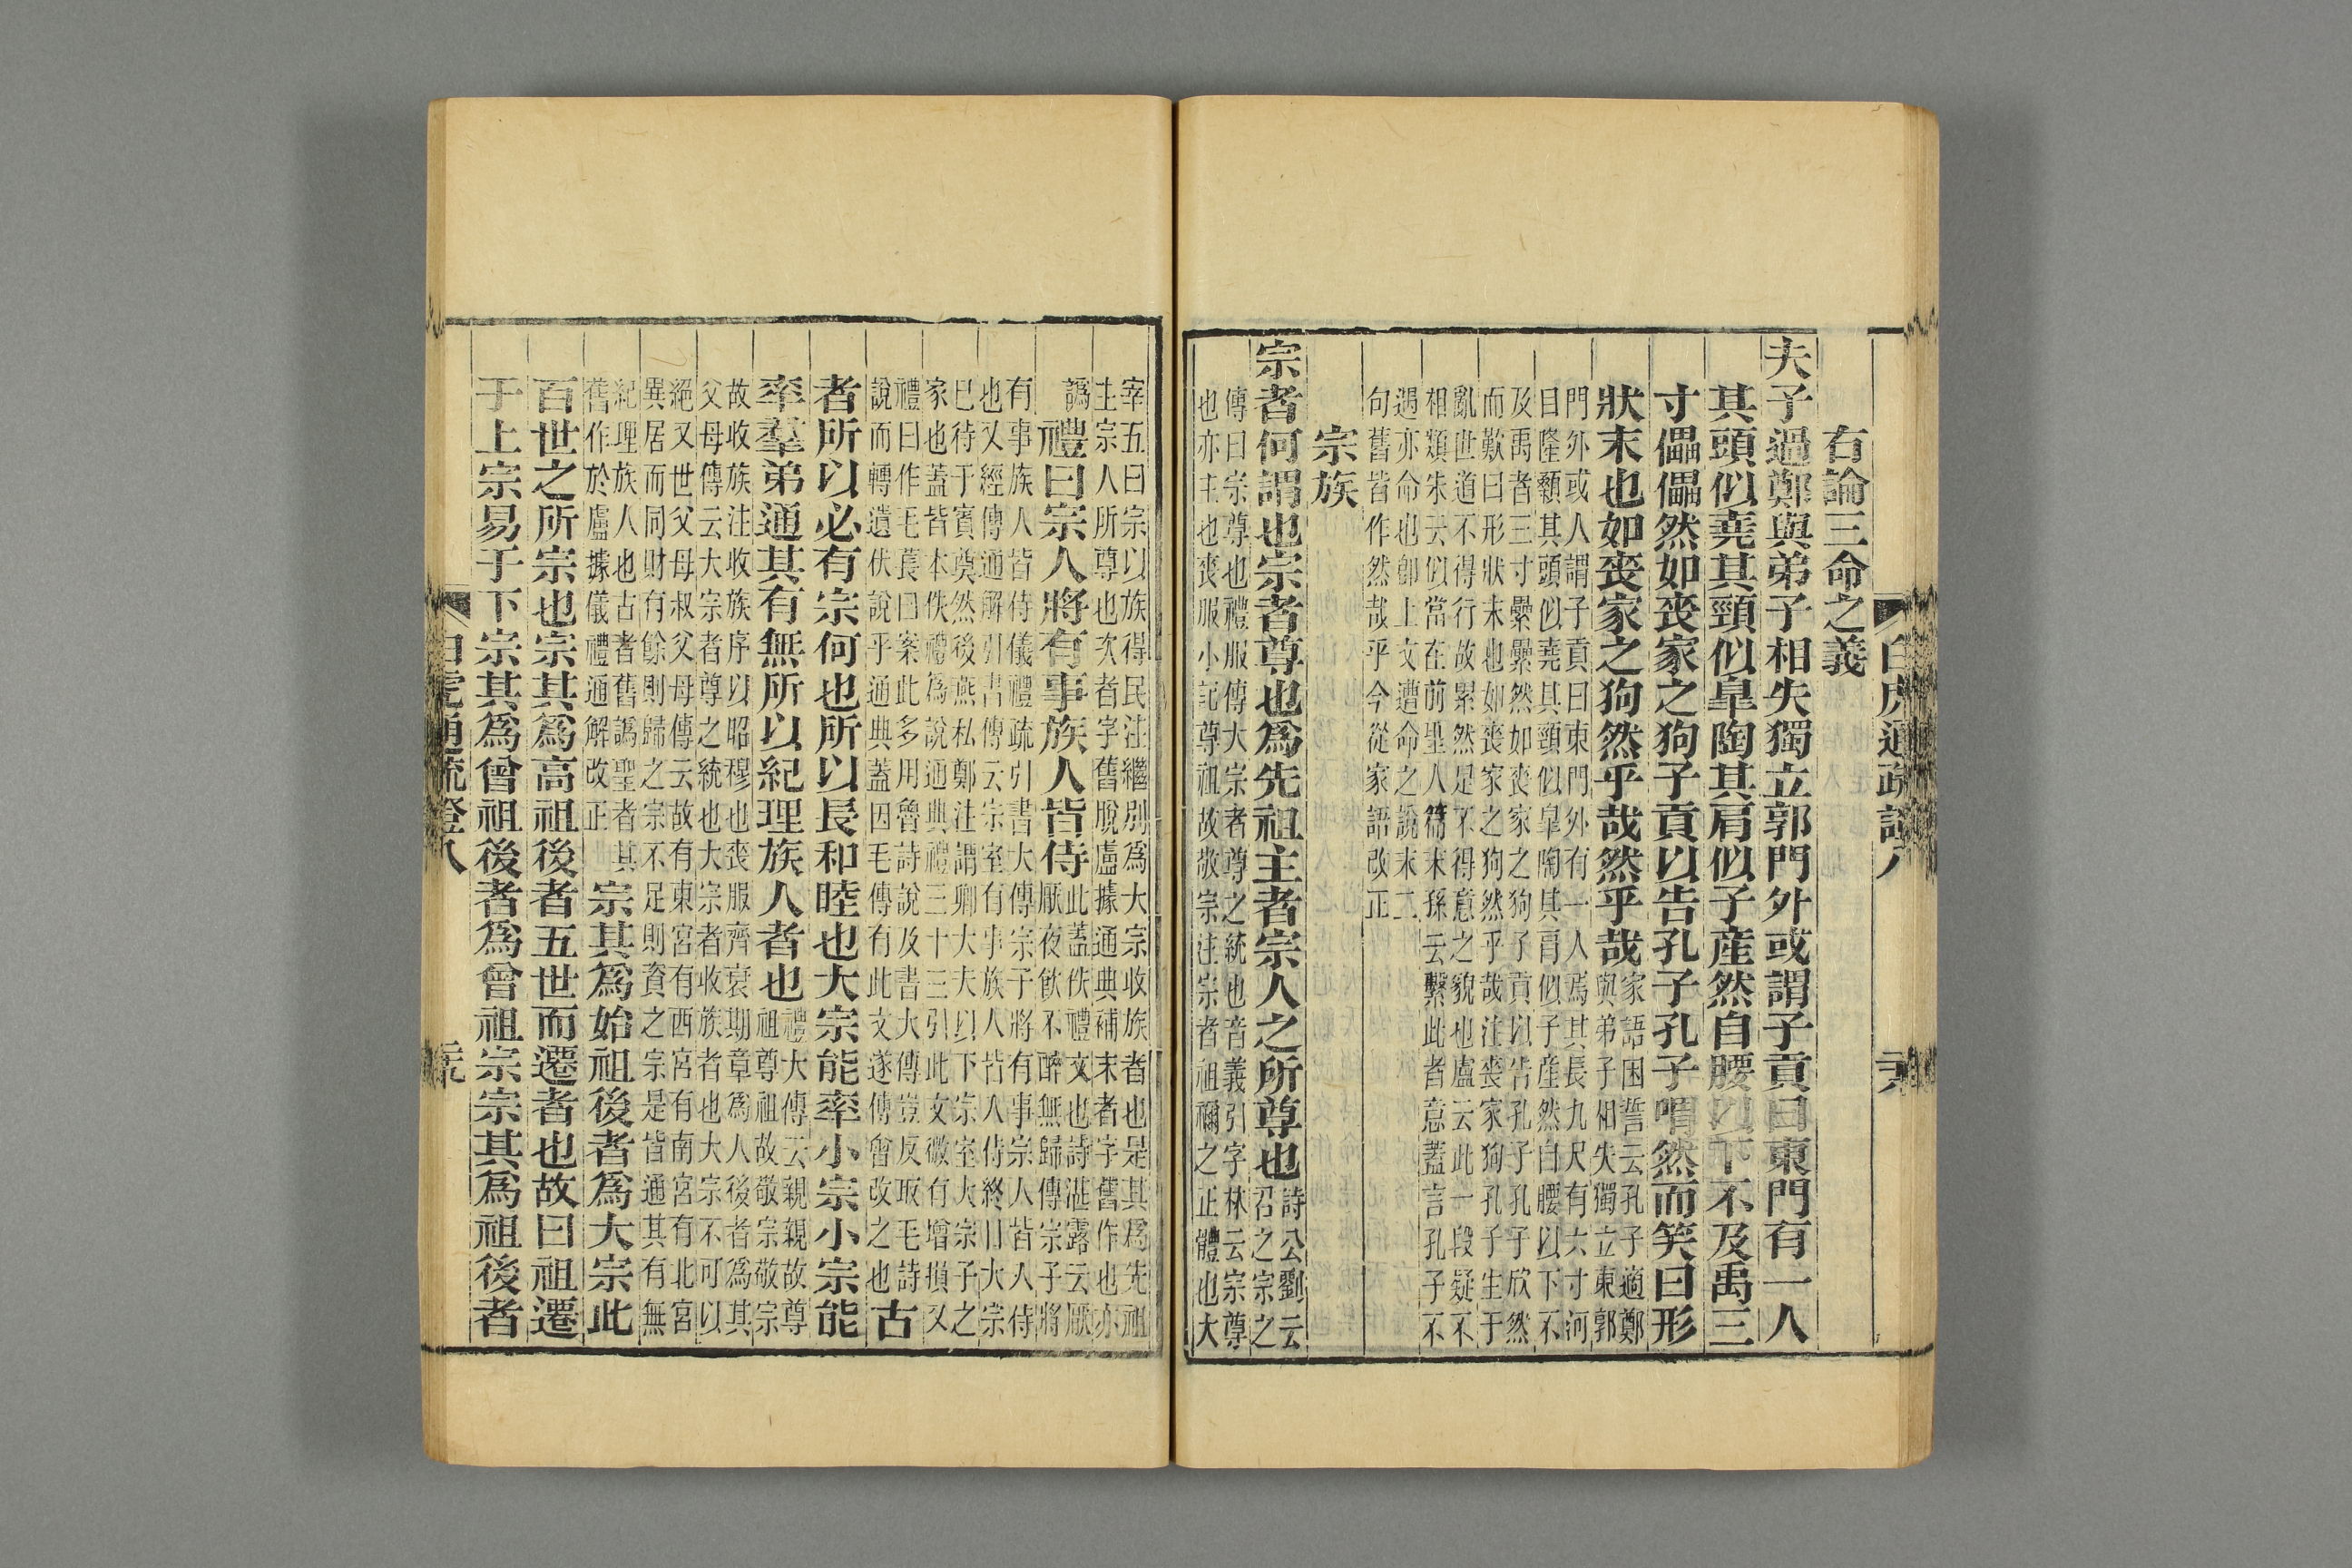 白虎通疏證八
右論三命之義
夫子過鄭與弟子相失獨立郭門外或謂子貢曰東門有一人
其頭似堯其頸似皐陶其肩似子產然自腰以下不及禹三
寸儡儡然如喪家之狗子貢以告孔子孔子喟然而笑曰形
狀末也如喪家之狗然乎哉然乎哉
家語困誓云孔子適鄭
與弟子相失獨立東郭
門外或人謂子貢曰東門外有一人焉其長九尺有六寸河
目隆顙其頭似堯其頸似皐陶其肩似子產然自腰以下不
及禹者三寸纍纍然如喪家之狗子貢以告孔子孔子欣然
而歎曰形狀末也如喪家之狗然乎哉注喪家狗孔子生于
亂世道不得行故纍然是不得意之貌也盧云此一段疑不
相類朱云似當在前聖人篇末孫云繫此者意蓋言孔子不
遇亦命也卽上文遭命之說末二
句舊皆作然哉乎今從家語改正
宗族
宗者何謂也宗者尊也爲先祖主者宗人之所尊也
詩公劉云
召之宗之
傳曰宗尊也禮服傳大宗者尊之統也音義引字林云宗尊
也亦主也喪服小記尊祖故敬宗注宗者祖禰之正體也大
宰五曰宗以族得民注繼別爲大宗收族者也是其爲先祖
主宗人所尊也次者字舊脫盧據通典補末者字舊作也亦
譌
禮曰宗人將有事族人皆侍
此蓋佚禮文也詩湛露云厭
厭夜飲不醉無歸傳宗子將
有事族人皆侍儀禮疏引書大傳宗子將有事宗人皆入侍
也又經傳通解引書傳云宗室有事族人皆入侍終日大宗
已待于賓奠然後燕私鄭注謂卿大夫以下宗室大宗子之
家也蓋皆本佚禮爲說通典禮三十三引此文微有增損又
禮曰作毛萇曰案此多用魯詩說及書大傳豈反取毛詩
說而轉遺伏說乎通典蓋因毛傳有此文遂傅會改之也
古
者所以必有宗何也所以長和睦也大宗能率小宗小宗能
率羣弟通其有無所以紀理族人者也
禮大傳云親親故尊
祖尊祖故敬宗敬宗
故收族注收族序以昭穆也喪服齊衰期章爲人後者爲其
父母傳云大宗者尊之統也大宗者收族者也大宗不可以
絕又世父母叔父母傳云故有東宮有西宮有南宮有北宮
異居而同財有餘則歸之宗不足則資之宗是皆通其有無
紀理族人也古者舊譌聖者其
舊作於盧據儀禮通解改正
宗其爲始祖後者爲大宗此
百世之所宗也宗其爲高祖後者五世而遷者也故曰祖遷
于上宗易于下宗其爲曾祖後者爲曾祖宗宗其爲祖後者
白虎通疏證八